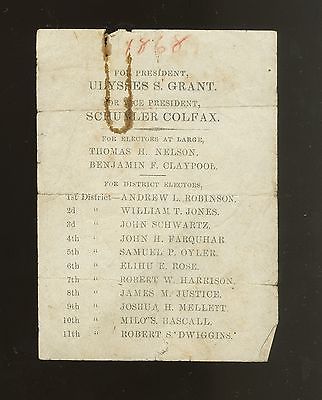 1868
FOR PRESIDENT,
ULYSSES S. GRANT.
FOR VICE PRESIDENT,
SCHUYLER COLFAX.
FOR ELECTORS AT LARGE,
THOMAS H. NELSON.
BENJAMIN F. CLAYPOOL.
FOR DISTRICT ELECTORS,
1st District—ANDREW L. ROBINSON.
2d " WILLIAM T. JONES.
3d " JOHN SCHWARTZ.
4th " JOHN H. FARQUHAR.
5th " SAMUEL P. OYLER.
6th " ELIHU E. ROSE.
7th " ROBERT W. HARRISON.
8th " JAMES M. JUSTICE.
9th " JOSHUA H. MELLETT.
10th " MILO S. HASCALL.
11th " ROBERT S. DWIGGINS.